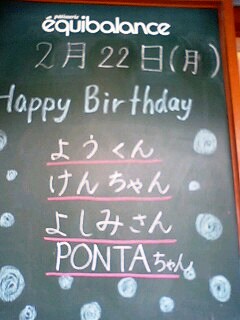 pâtisserie
équibalance
2月22日(月)
Happy Birthday
ようくん
けんちゃん
よしみさん
PONTAちゃん